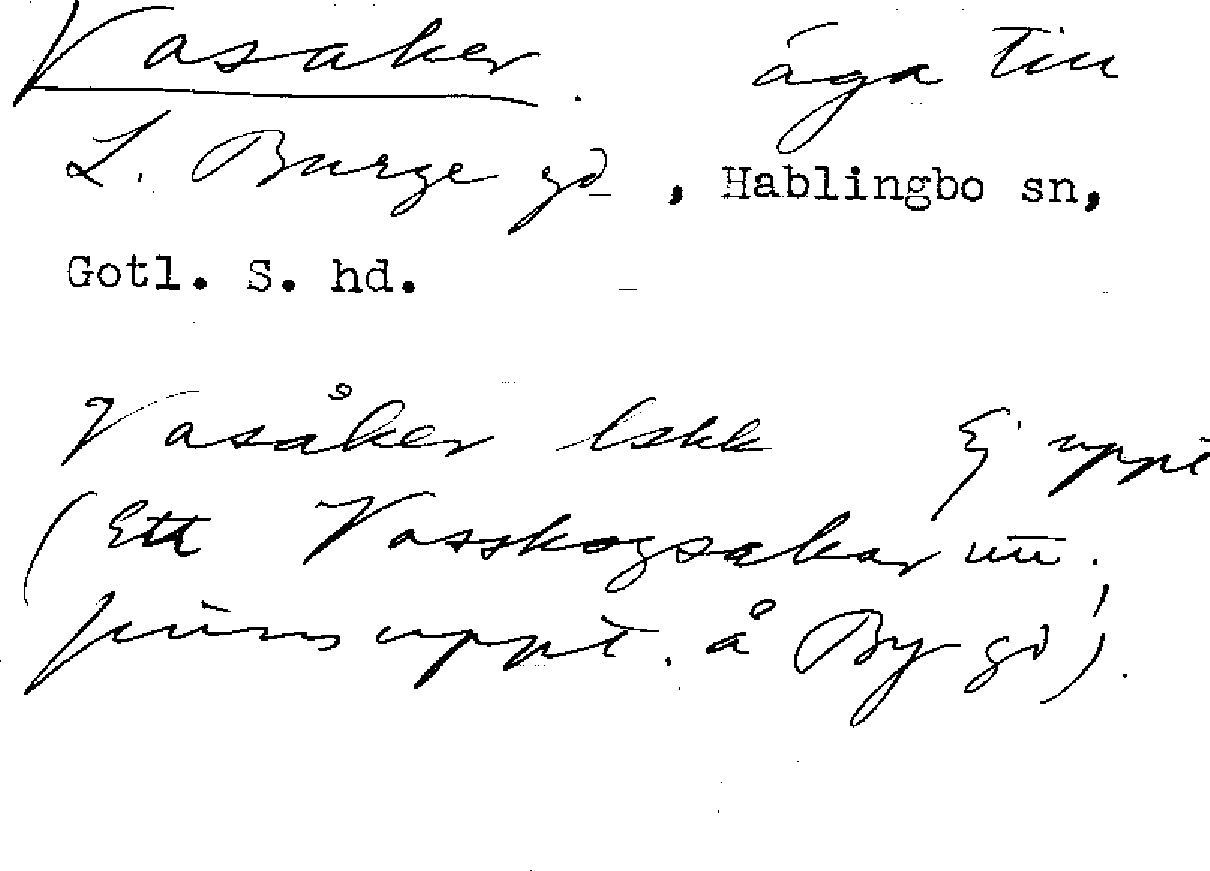 Vasaker. äga till
L. Burge gd, Hablingbo sn,
Gotl. S. hd.
Vasåker lskk Ej uppt
(Ett Vasskogsakar utt.
finns uppt. å By gd).